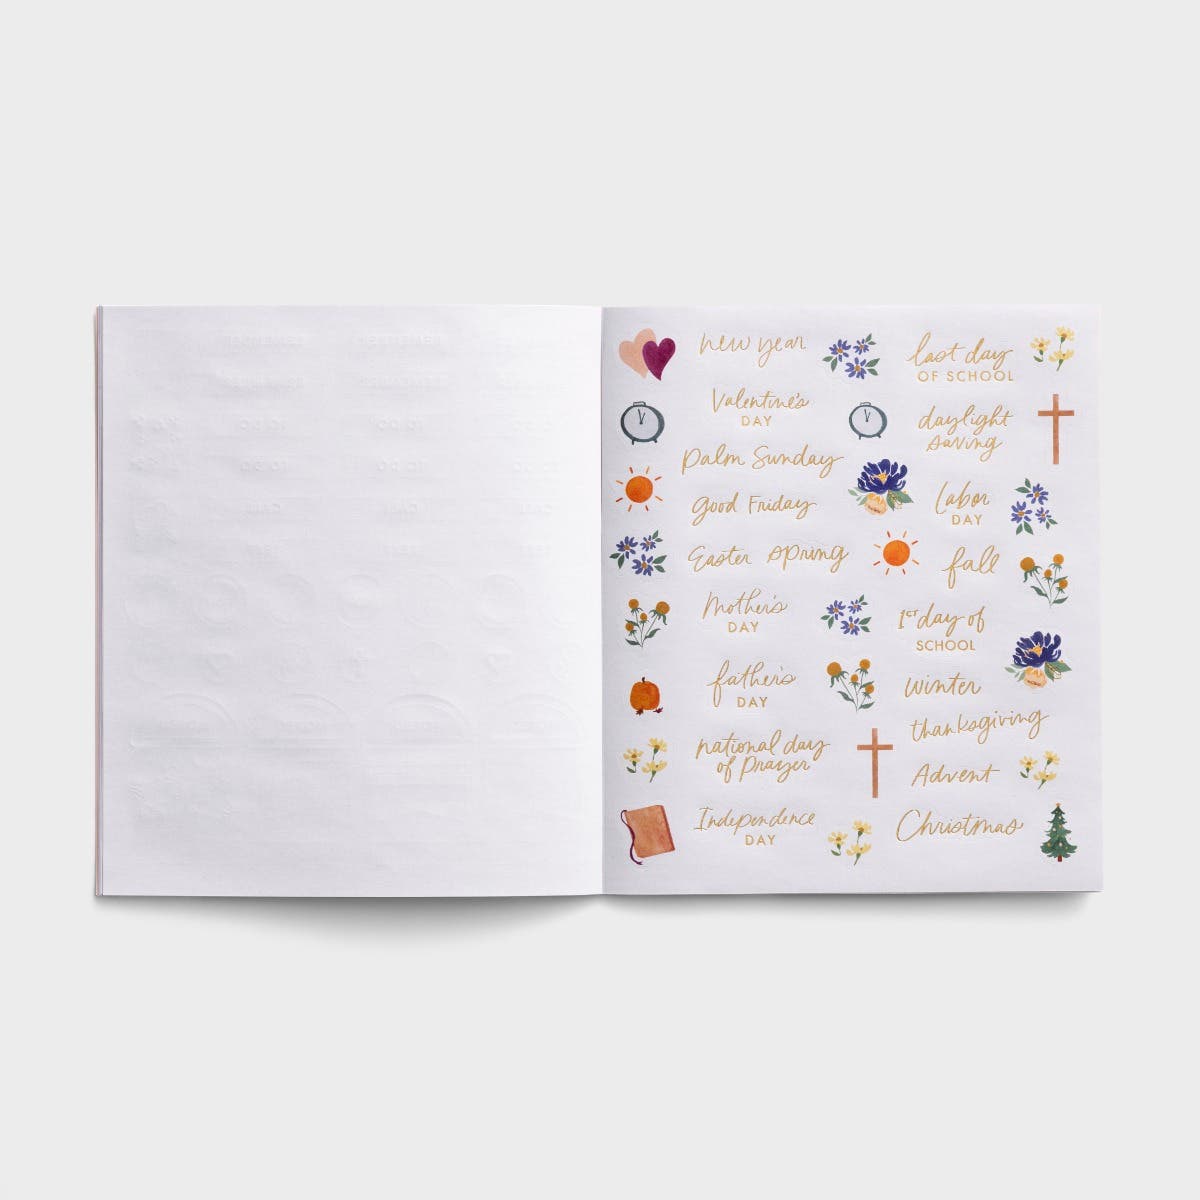 new year
Valentine's
DAY
Palm Sunday
good Friday
Easter spring
Mother's
DAY
father's
DAY
national day
of Prayer
Independence
DAY
last day
OF SCHOOL
daylight
saving
Labor
DAY
fall
1ST day of
SCHOOL
winter
thanksgiving
Advent
Christmas